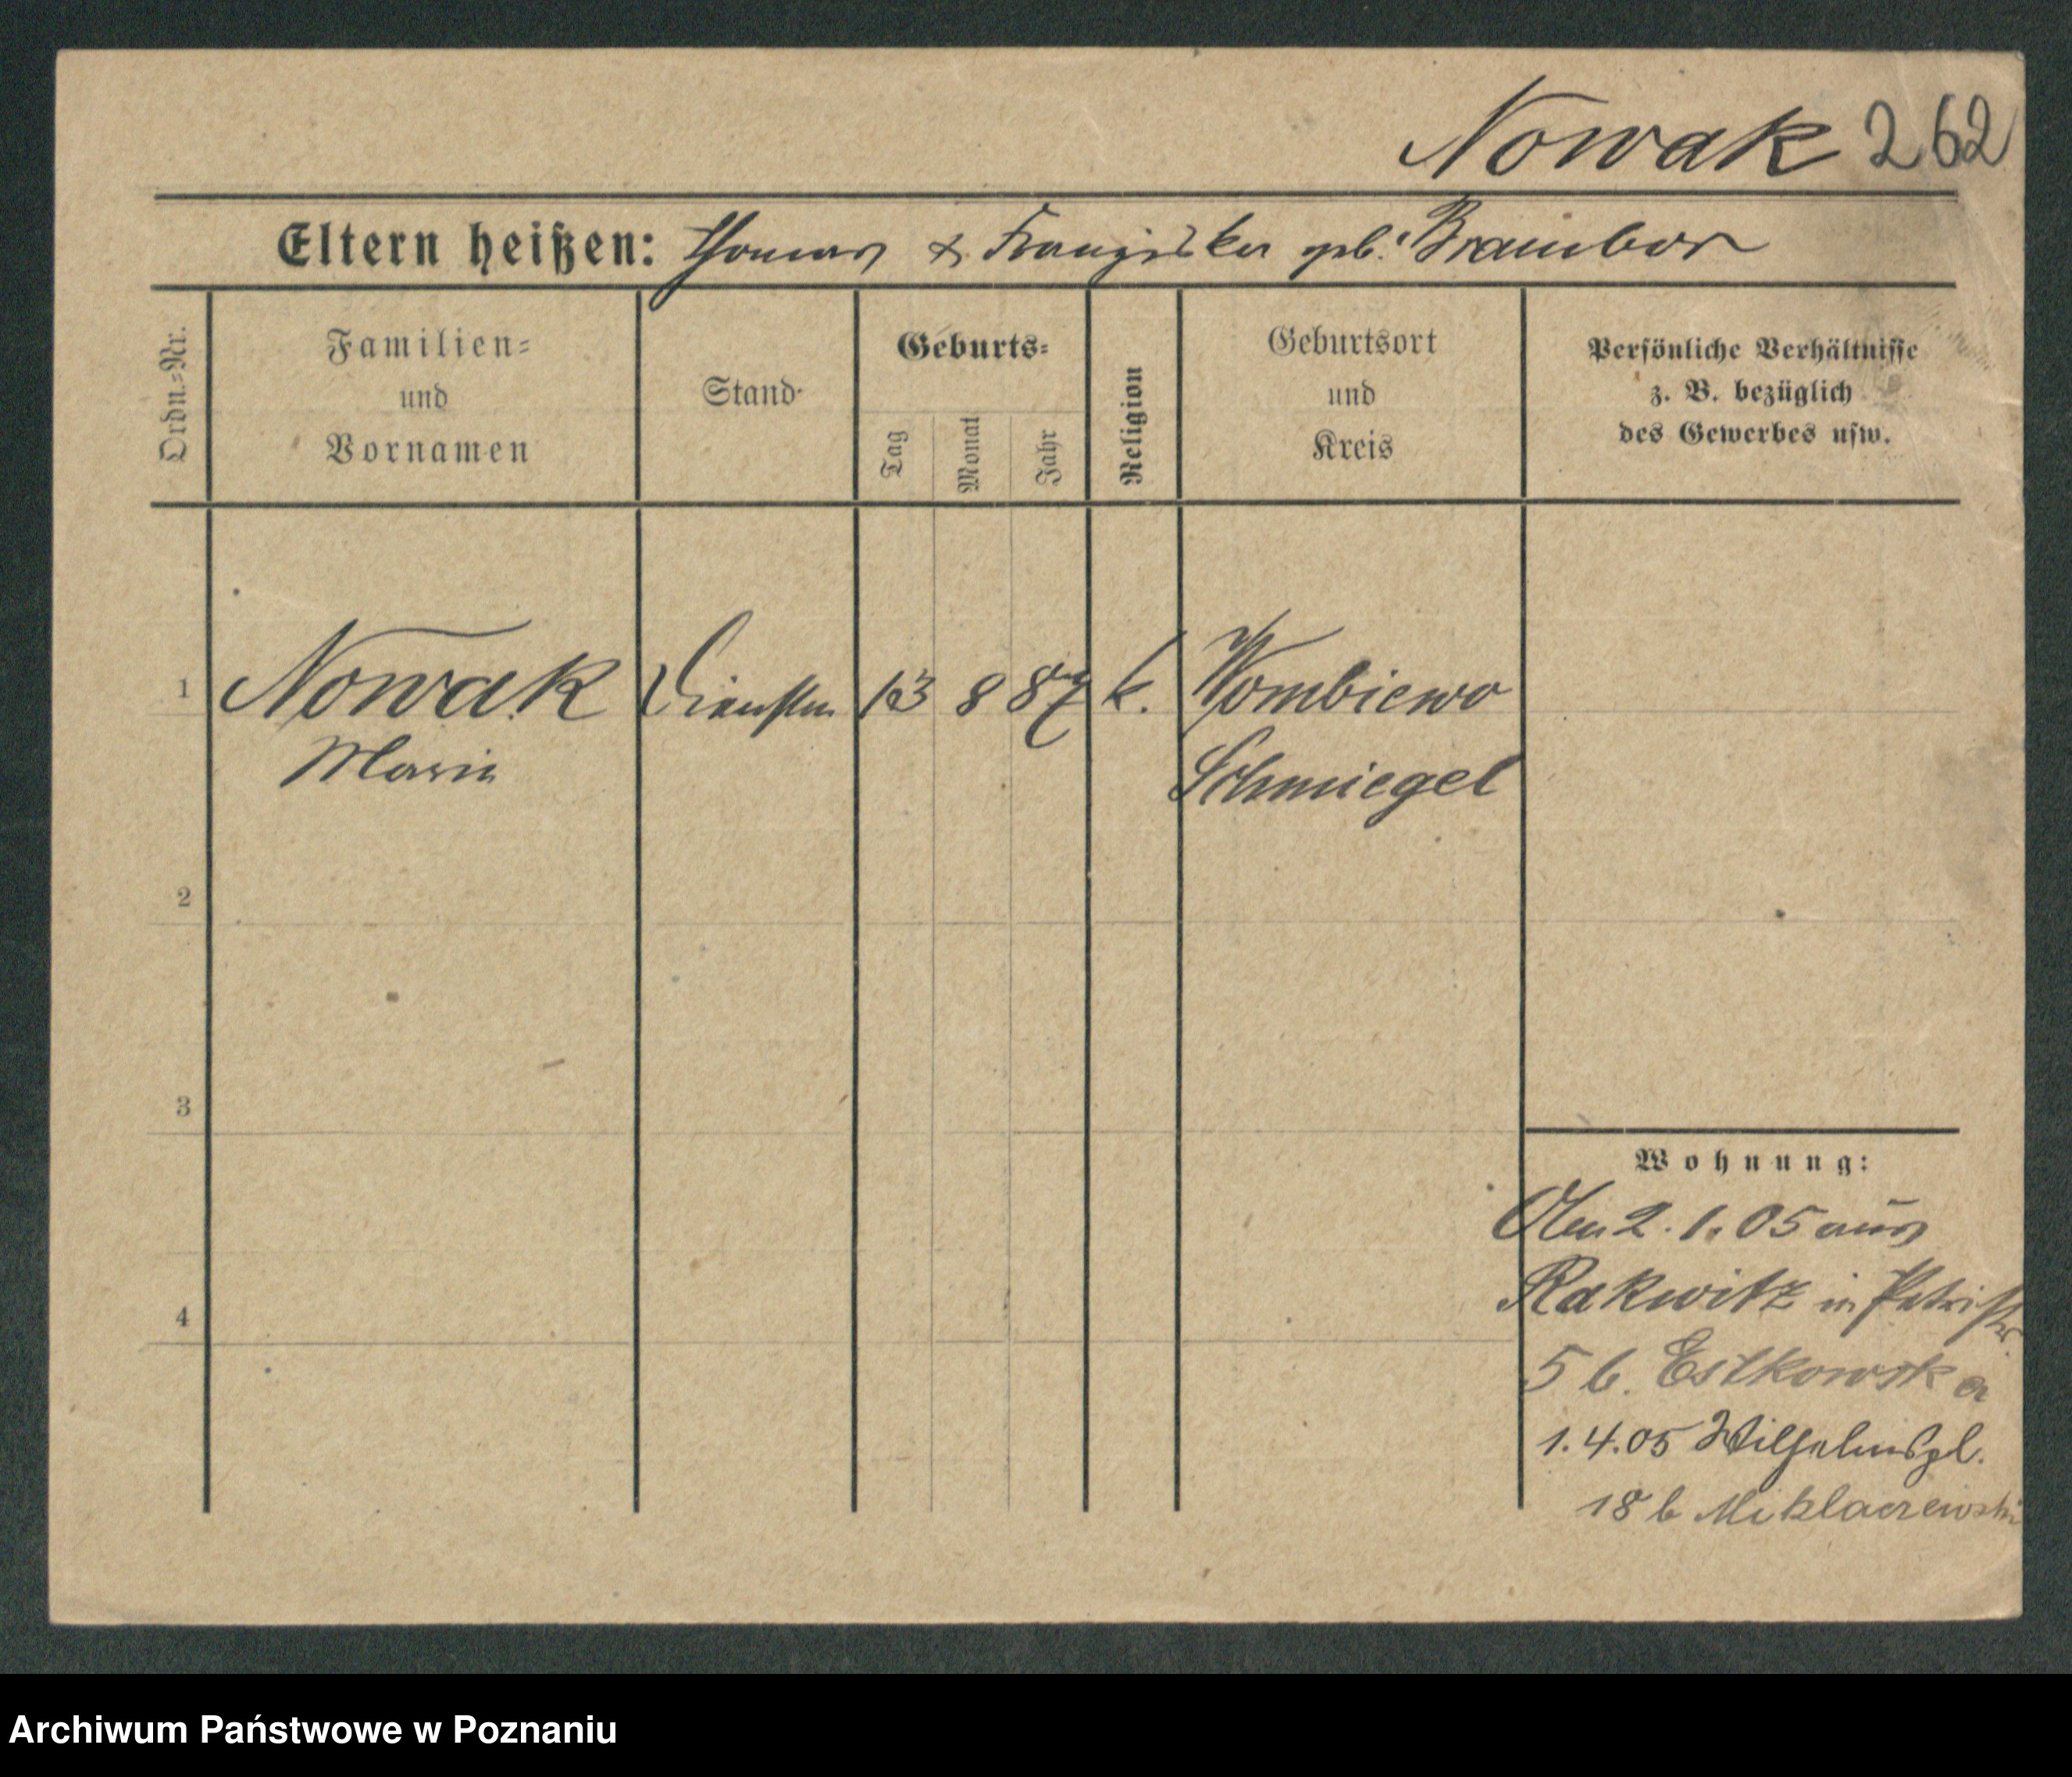 Nowak 262
Eltern heißen: Thomas & Franziska geb. Brambor
Ordn.=Nr.
Familien=
und
Vornamen
Stand
Geburts=
Tag
Monat
Jahr
Religion
Geburtsort
und
Kreis
Persönliche Verhältnisse
z. B. bezüglich
des Gewerbes usw.
1 Nowak 13 8 87 k. Wombiewo
Marie Schmiegel
2
3
4
Wohnung:
2. 1. 05 aus
Rakwitz in Petristr
5 b. Estkowsk
1. 4. 05 Wilhelmspl.
18 b Miklaszewski
Archiwum Państwowe w Poznaniu